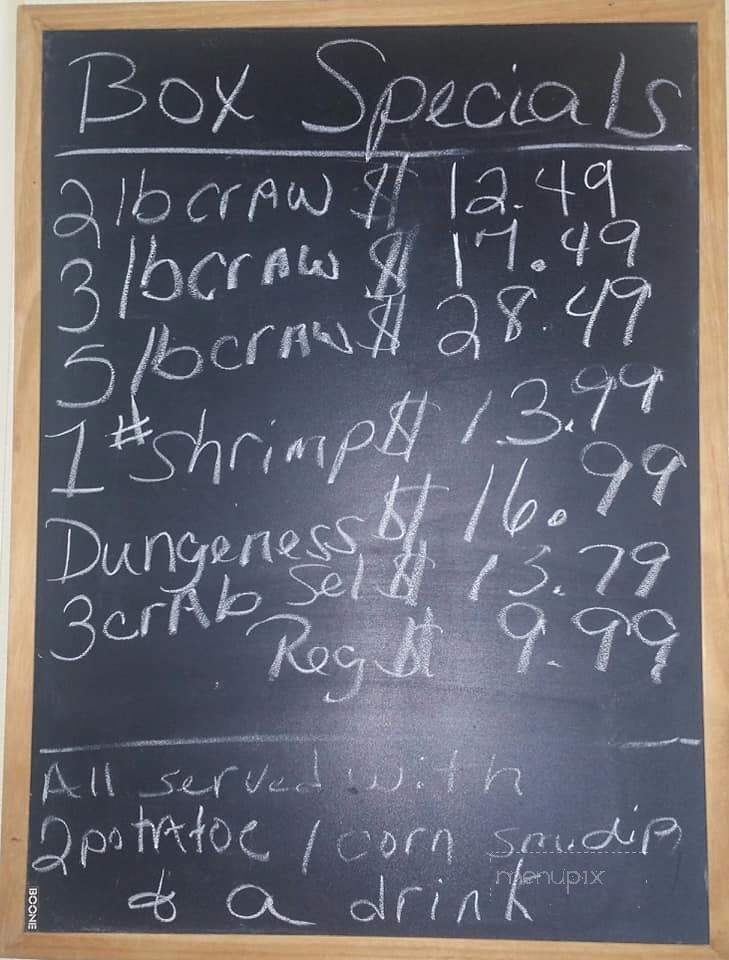 Box Specials
2 lb crAw $ 12.49
3 lb crAw $ 17.49
5 lb crAw $ 28.49
1 # shrimp $ 13.99
Dungeness $ 16.99
3 crAb Sel $ 13.79
Reg $ 9.99
All served with
2 potAtoe 1 corn sm. dip
& a drink
menupix
BOONE